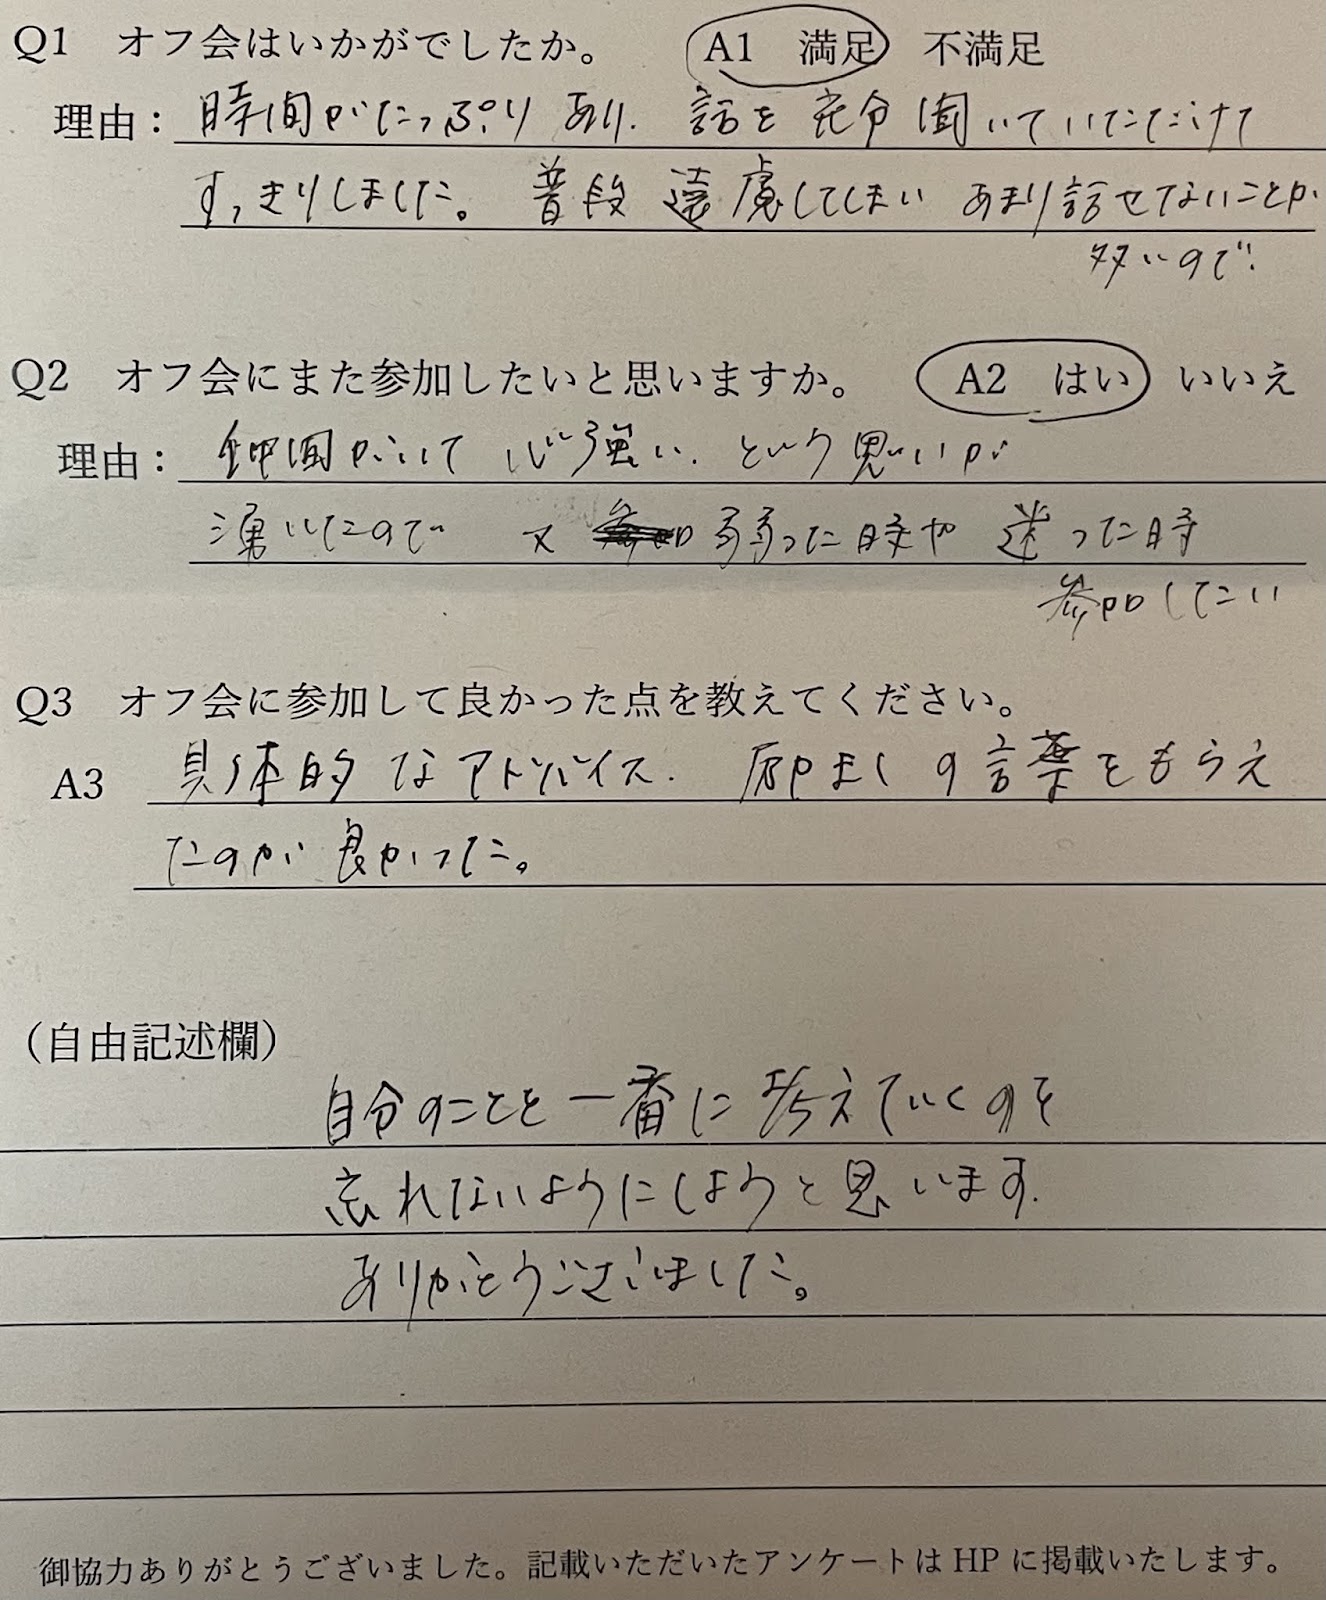 Q1 オフ会はいかがでしたか。 A1 満足 不満足
理由: 時間がたっぷりあり、話を充分聞いていただけて
すっきりしました。普段遠慮してしまいあまり話せてないことが
多いので、
Q2 オフ会にまた参加したいと思いますか。 A2 はい いいえ
理由: 仲間がいて心強い、という思いが
湧いたので 又 弱った時や迷った時
参加したい
Q3 オフ会に参加して良かった点を教えてください。
A3 具体的なアドバイス、励ましの言葉をもらえ
たのが良かった。
(自由記述欄)
自分のことを一番に考えていくのを
忘れないようにしようと思います。
ありがとうございました。
御協力ありがとうございました。記載いただいたアンケートは HP に掲載いたします。